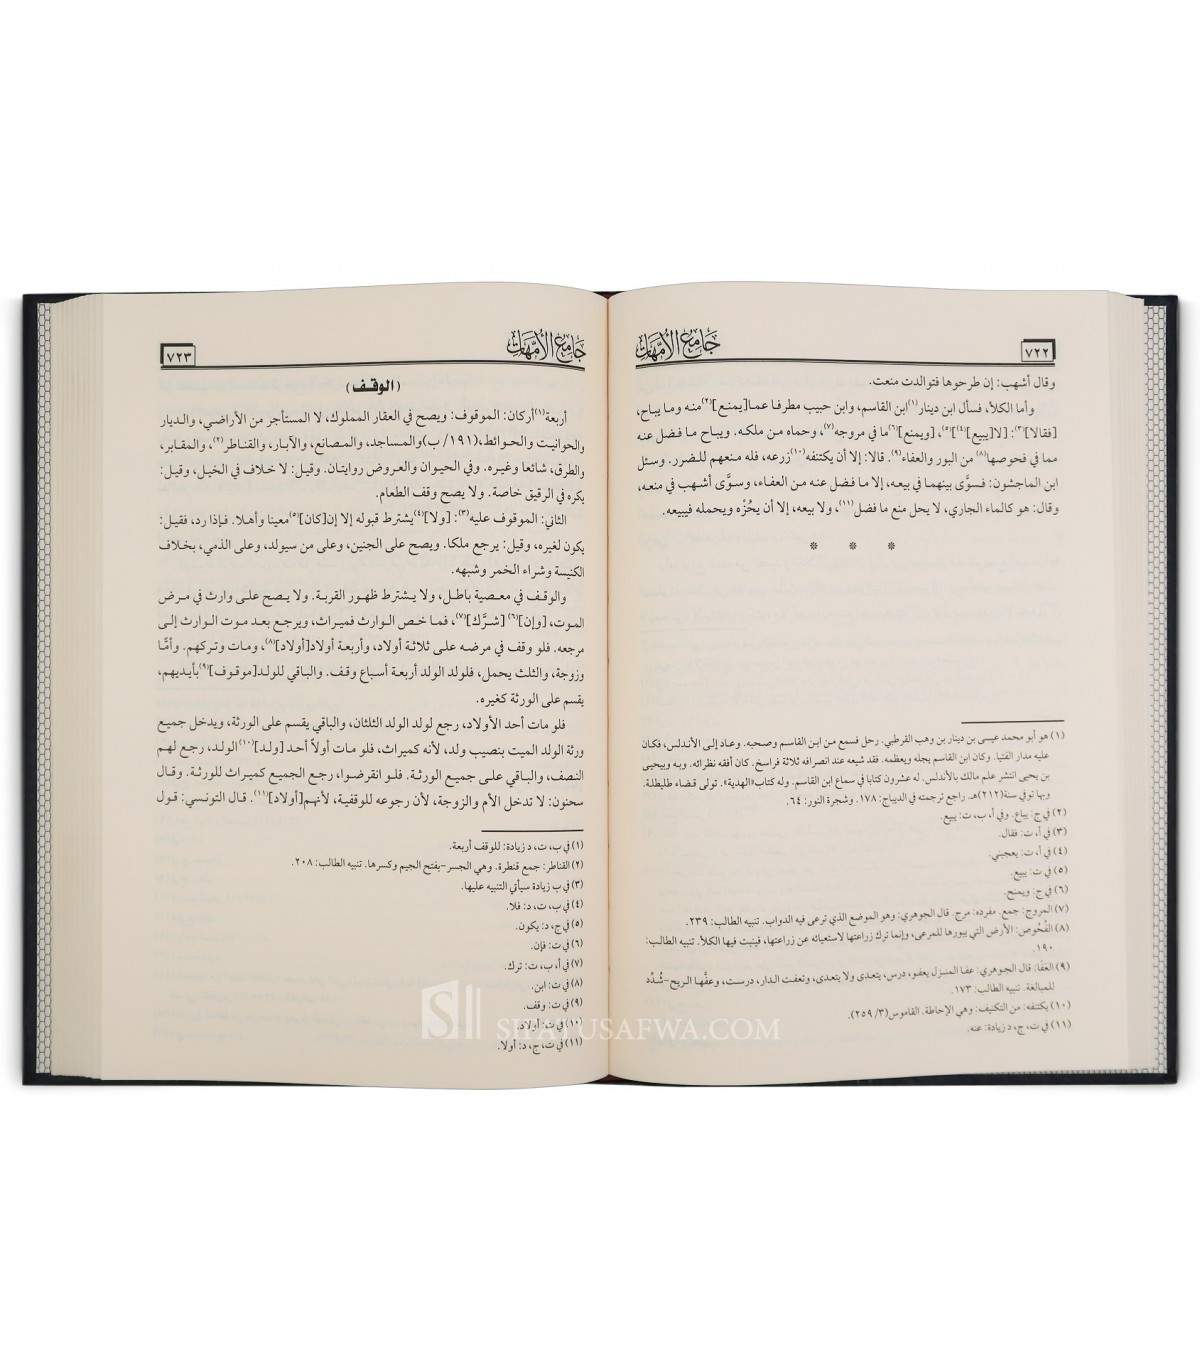 جامع الأمهات
٧٢٢
وقال أشهب: إن طرحوها فتوالدت منعت.
وأما الكلأ، فسأل ابن دينار(١)ابن القاسم، وابن حبيب مطرفا عما[يمنع](٢)منه وما يباح،
[فقالا](٣): [لا[يبيع](٤)](٥)، [ويمنع](٦)ما في مروجه(٧)، وحماه من ملكه. ويباح ما فضل عنه
مما في فحوصها(٨) من البور والعفاء(٩). قالا: إلا أن يكتنفه(١٠)زرعه، فله منعهم للضرر. وسئل
ابن الماجشون: فسوَّى بينهما في بيعه، إلا ما فضل عنه من العفاء، وسوَّى أشهب في منعه،
وقال: هو كالماء الجاري، لا يحل منع ما فضل(١١)، ولا بيعه، إلا أن يحُزْه ويحمله فيبيعه.
(١) هو أبو محمد عيسى بن دينار بن وهب القرطبي. رحل فسمع من ابن القاسم وصحبه. وعاد إلى الأندلس، فكان
عليه مدار الفتيا. وكان ابن القاسم يجله ويعظمه. فقد شيعه عند انصرافه ثلاثة فراسخ. كان أفقه نظرائه. وبه وبيحيى
بن يحيى انتشر علم مالك بالأندلس. له عشرون كتابا في سماع ابن القاسم. وله كتاب«الهدية». تولى قضاء طليطلة.
وبها توفي سنة(٢١٢)هـ. راجع ترجمته في الديباج: ١٧٨. وشجرة النور: ٦٤.
(٢) في ج: يباع. وفي أ، ب، ت: يبيع.
(٣) في أ، ت: فقال.
(٤) في أ، ت: يعجبني.
(٥) في ت: يبيع.
(٦) في ج: ويمنح.
(٧) المروج: جمع. مفرده: مرج. قال الجوهري: وهو الموضع الذي ترعى فيه الدواب. تنبيه الطالب: ٢٣٩.
(٨) الفُحُوص: الأرض التي يبورها للمرعى، وإنما ترك زراعتها لاستغنائه عن زراعتها، فينبت فيها الكلأ. تنبيه الطالب:
١٩٠.
(٩) العَفَا: قال الجوهري: عفا المنزل يعفو، درس، يتعدى ولا يتعدى، وتعفت الدار، درست، وعفَّها الريح-شُدِّد
للمبالغة. تنبيه الطالب: ١٧٣.
(١٠) يكتنفه: من التكنيف: وهي الإحاطة. القاموس(٣/ ٢٥٩).
(١١) في ت، ج، د زيادة: عنه.
جامع الأمهات
٧٢٣
(الوقف)
أربعة(١)أركان: الموقوف: ويصح في العقار المملوك، لا المستأجر من الأراضي، والديار
والحوانيت والحوائط،(١٩١/ ب)والمساجد، والمصانع، والآبار، والقناطر(٢)، والمقابر،
والطرق، شائعا وغيره. وفي الحيوان والعروض روايتان. وقيل: لا خلاف في الخيل، وقيل:
يكره في الرقيق خاصة. ولا يصح وقف الطعام.
الثاني: الموقوف عليه(٣): [ولا](٤)يشترط قبوله إلا إن[كان](٥)معينا وأهلا. فإذا رد، فقيل:
يكون لغيره، وقيل: يرجع ملكا. ويصح على الجنين، وعلى من سيولد، وعلى الذمي، بخلاف
الكنيسة وشراء الخمر وشبهه.
والوقف في معصية باطل، ولا يشترط ظهور القربة. ولا يصح على وارث في مرض
الموت، [وإن](٦) [شرَّك](٧)، فما خص الوارث فميراث، ويرجع بعد موت الوارث إلى
مرجعه. فلو وقف في مرضه على ثلاثة أولاد، وأربعة أولاد[أولاد](٨)، ومات وتركهم. وأمًّا
وزوجة، والثلث يحمل، فلولد الولد أربعة أسباع وقف. والباقي للولد[موقوف](٩)بأيديهم،
يقسم على الورثة كغيره.
فلو مات أحد الأولاد، رجع لولد الولد الثلثان، والباقي يقسم على الورثة، ويدخل جميع
ورثة الولد الميت بنصيب ولد، لأنه كميراث، فلو مات أولاً أحد [ولد](١٠)الولد، رجع لهم
النصف، والباقي على جميع الورثة. فلو انقرضوا، رجع الجميع كميراث للورثة. وقال
سحنون: لا تدخل الأم والزوجة، لأن رجوعه للوقفية، لأنهم[أولاد](١١). قال التونسي: قول
(١) في ب، ت، د زيادة: للوقف أربعة.
(٢) القناطر: جمع قنطرة. وهي الجسر-بفتح الجيم وكسرها. تنبيه الطالب: ٢٠٨.
(٣) في ب زيادة سيأتي التنبيه عليها.
(٤) في ب، ت، د: فلا.
(٥) في ج، د: يكون.
(٦) في ت: فإن.
(٧) في أ، ب، ت: ترك.
(٨) في ت: ابن.
(٩) في ت: وقف.
(١٠) في ت: أولاد.
(١١) في ت، ج، د: أولا.
SIFATUSAFWA.COM